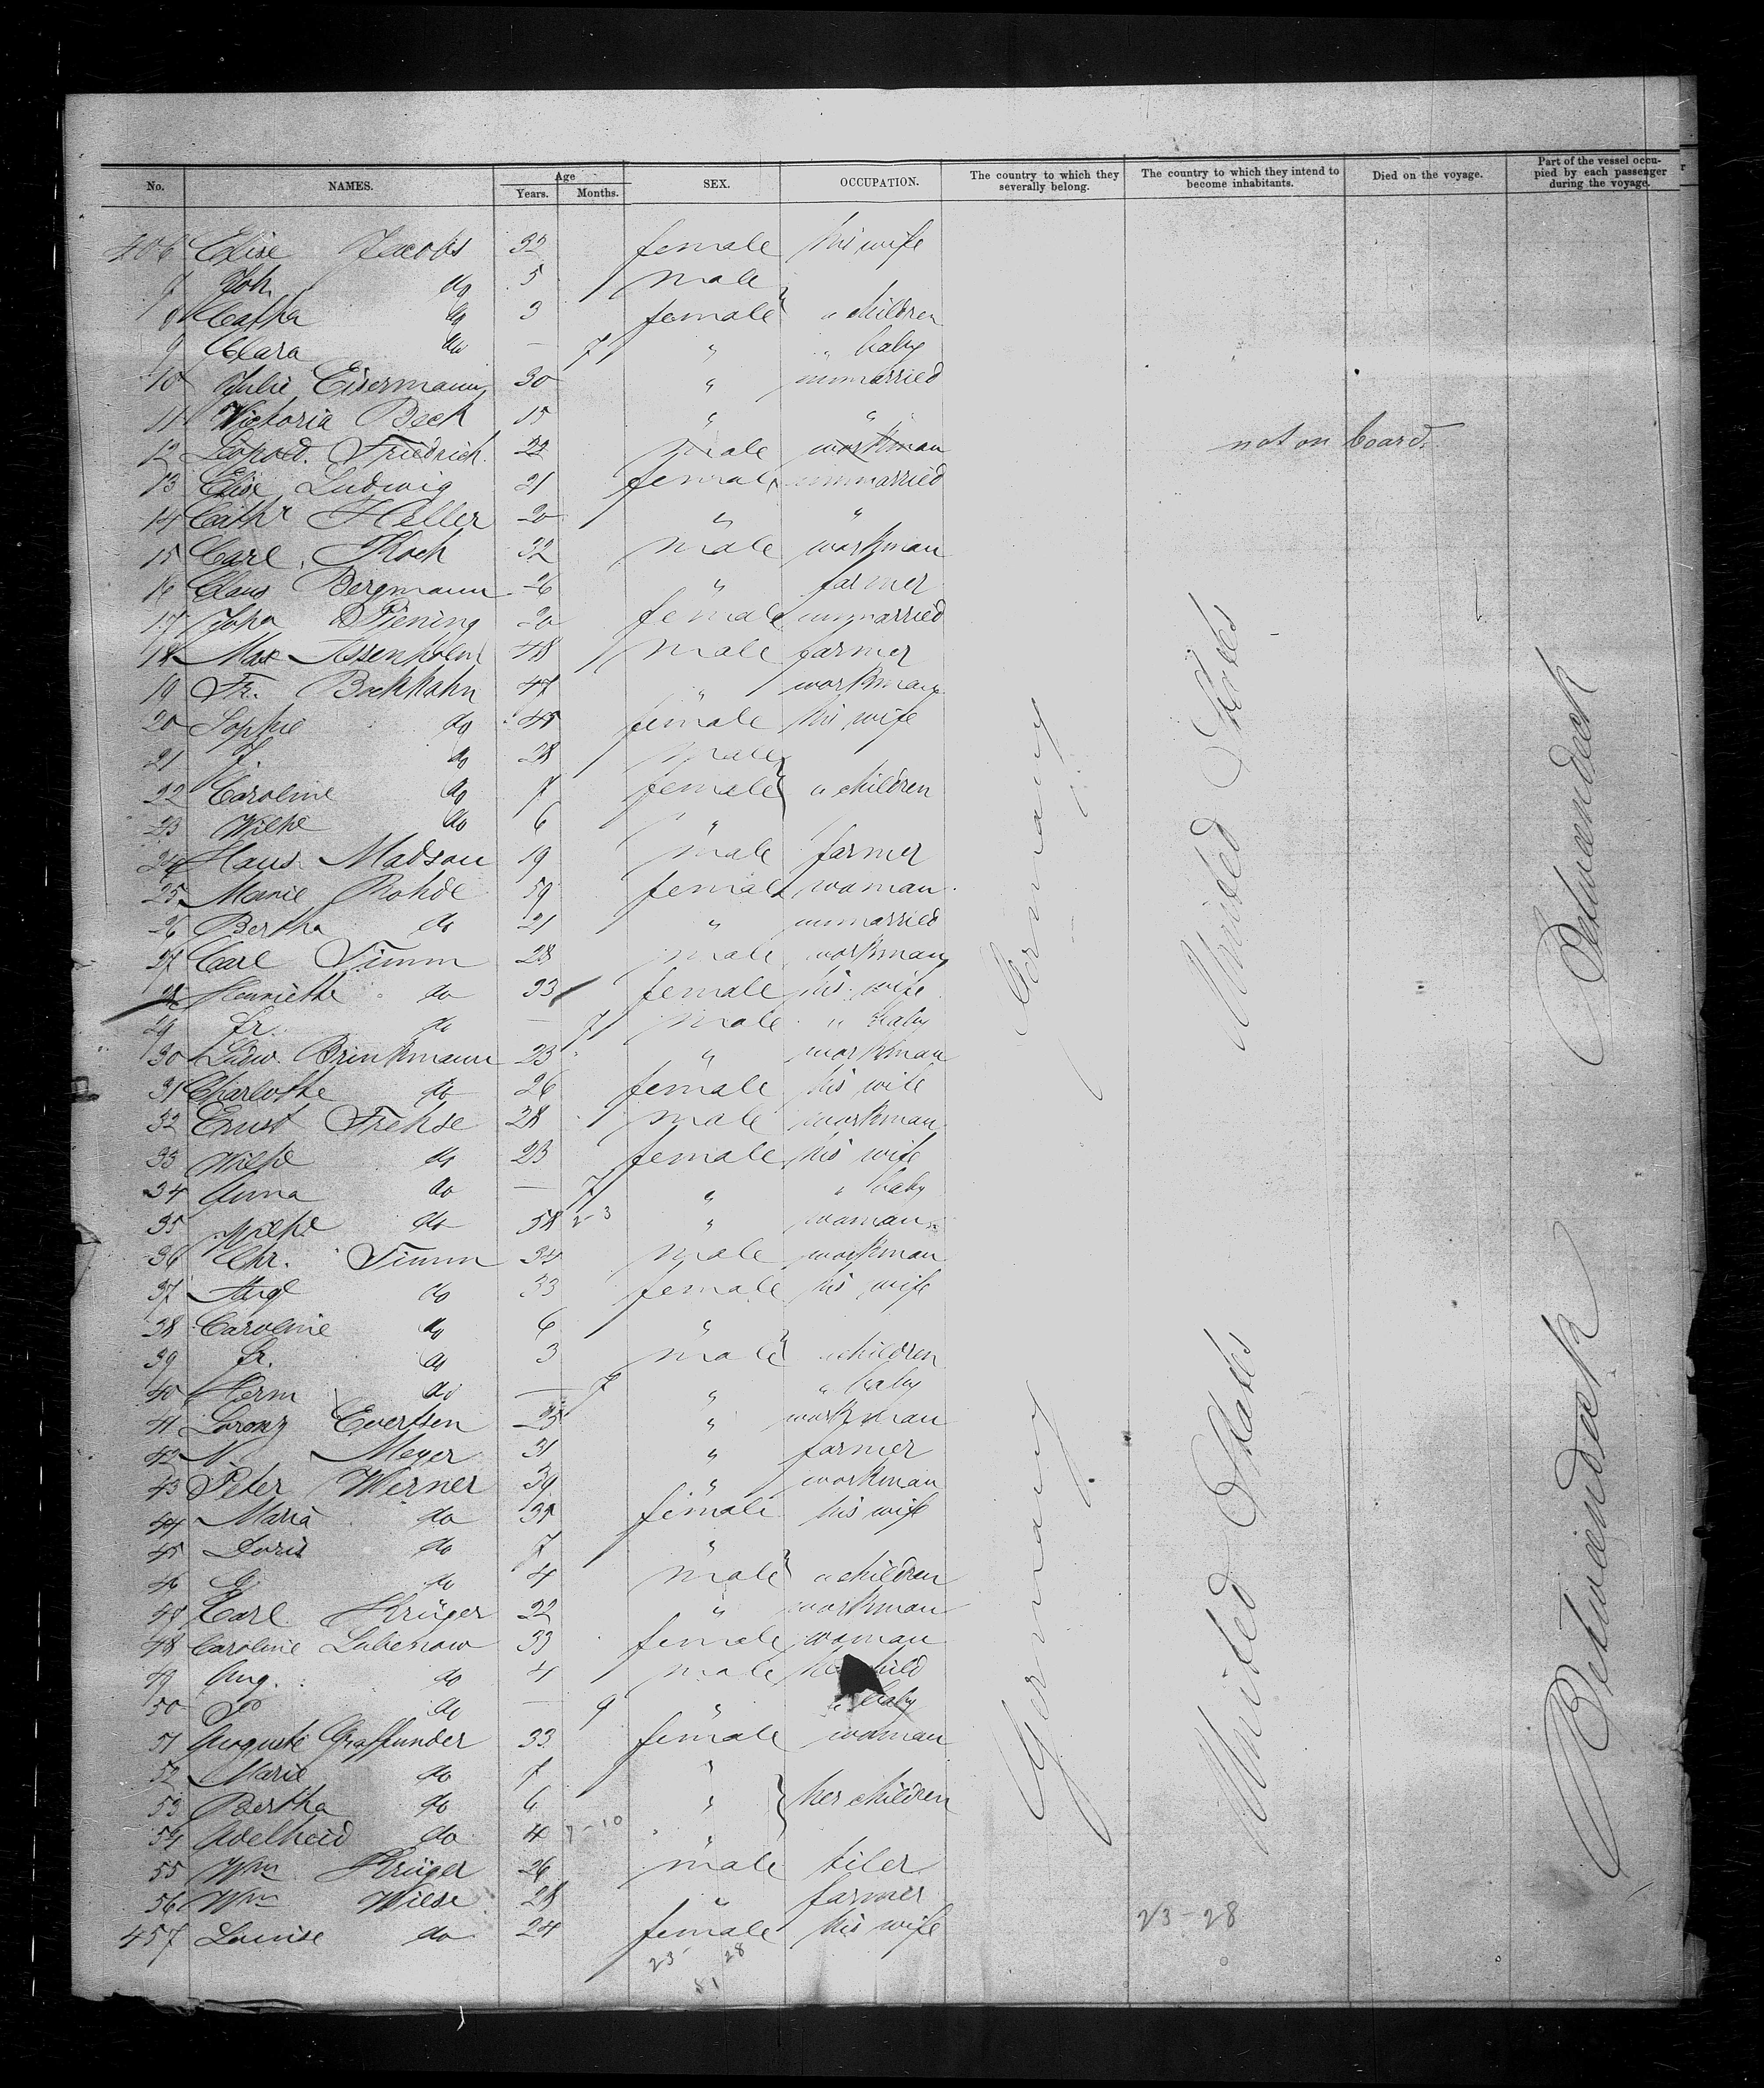 No. NAMES. Age Years. Months. SEX. OCCUPATION. The country to which they severally belong. The country to which they intend to become inhabitants. Died on the voyage. Part of the vessel occupied by each passenger during the voyage.
406 Elise Jacobs 32 female his wife
7 Joh. do 5 male
8 Catha do 3 female " children
9 Clara do — 7 " " baby
10 Julie Eisermann 30 " unmarried
11 Victoria Beck 15 " "
12 Leopold Friedrich 22 male workman not on board.
13 Elise Ludwig 21 female unmarried
14 Cathr Heller 20 " "
15 Carl Koch 32 male workman
16 Claus Bergmann 26 " farmer
17 Joha Piening 20 female unmarried
18 Max Assenholm 48 male farmer
19 Fr. Bockhahn 47 " workman
20 Sophie do 45 female his wife
21 J. do 28 male
22 Caroline do 7 female " children
23 Wilhe do 6 "
24 Hans Madsau 19 male farmer
25 Marie Rohde 59 female woman
26 Bertha do 21 " unmarried
27 Carl Timm 28 male workman
28 Henriette do 33 female his wife
29 Fr. do — 7 male " baby
30 Ludw. Brinkmann 23 " workman
31 Charlotte do 26 female his wife
32 Ernst Frehse 28 male workman
33 Wilhe do 23 female his wife
34 Anna do — 7 " " baby
35 Wilhe do 58 2-3 " woman
36 Chr. Timm 34 male workman
37 Auge do 33 female his wife
38 Caroline do 6 "
39 Fr. do 3 male " children
40 Herm do — 7 " " baby
41 Lorenz Evertsen 25 " workman
42 N Meyer 31 " farmer
43 Peter Werner 39 " workman
44 Maria do 35 female his wife
45 Doris do 7 "
46 do 4 male " children
47 Carl Krüger 22 " workman
48 Caroline Lubenow 33 female woman
49 Aug. do 4 male her child
50 do — 9 " " baby
51 Auguste Graffunder 33 female woman
52 Marie do 7 "
53 Bertha do 6 " her children
54 Adelheid do 4 7-10 "
55 Wm Krüger 26 male tiler
56 Wm Wiese 28 " farmer
457 Louise do 24 female his wife
23 28
81
Germany
Germany
United States
United States
23-28
Betweendeck
Betweendeck